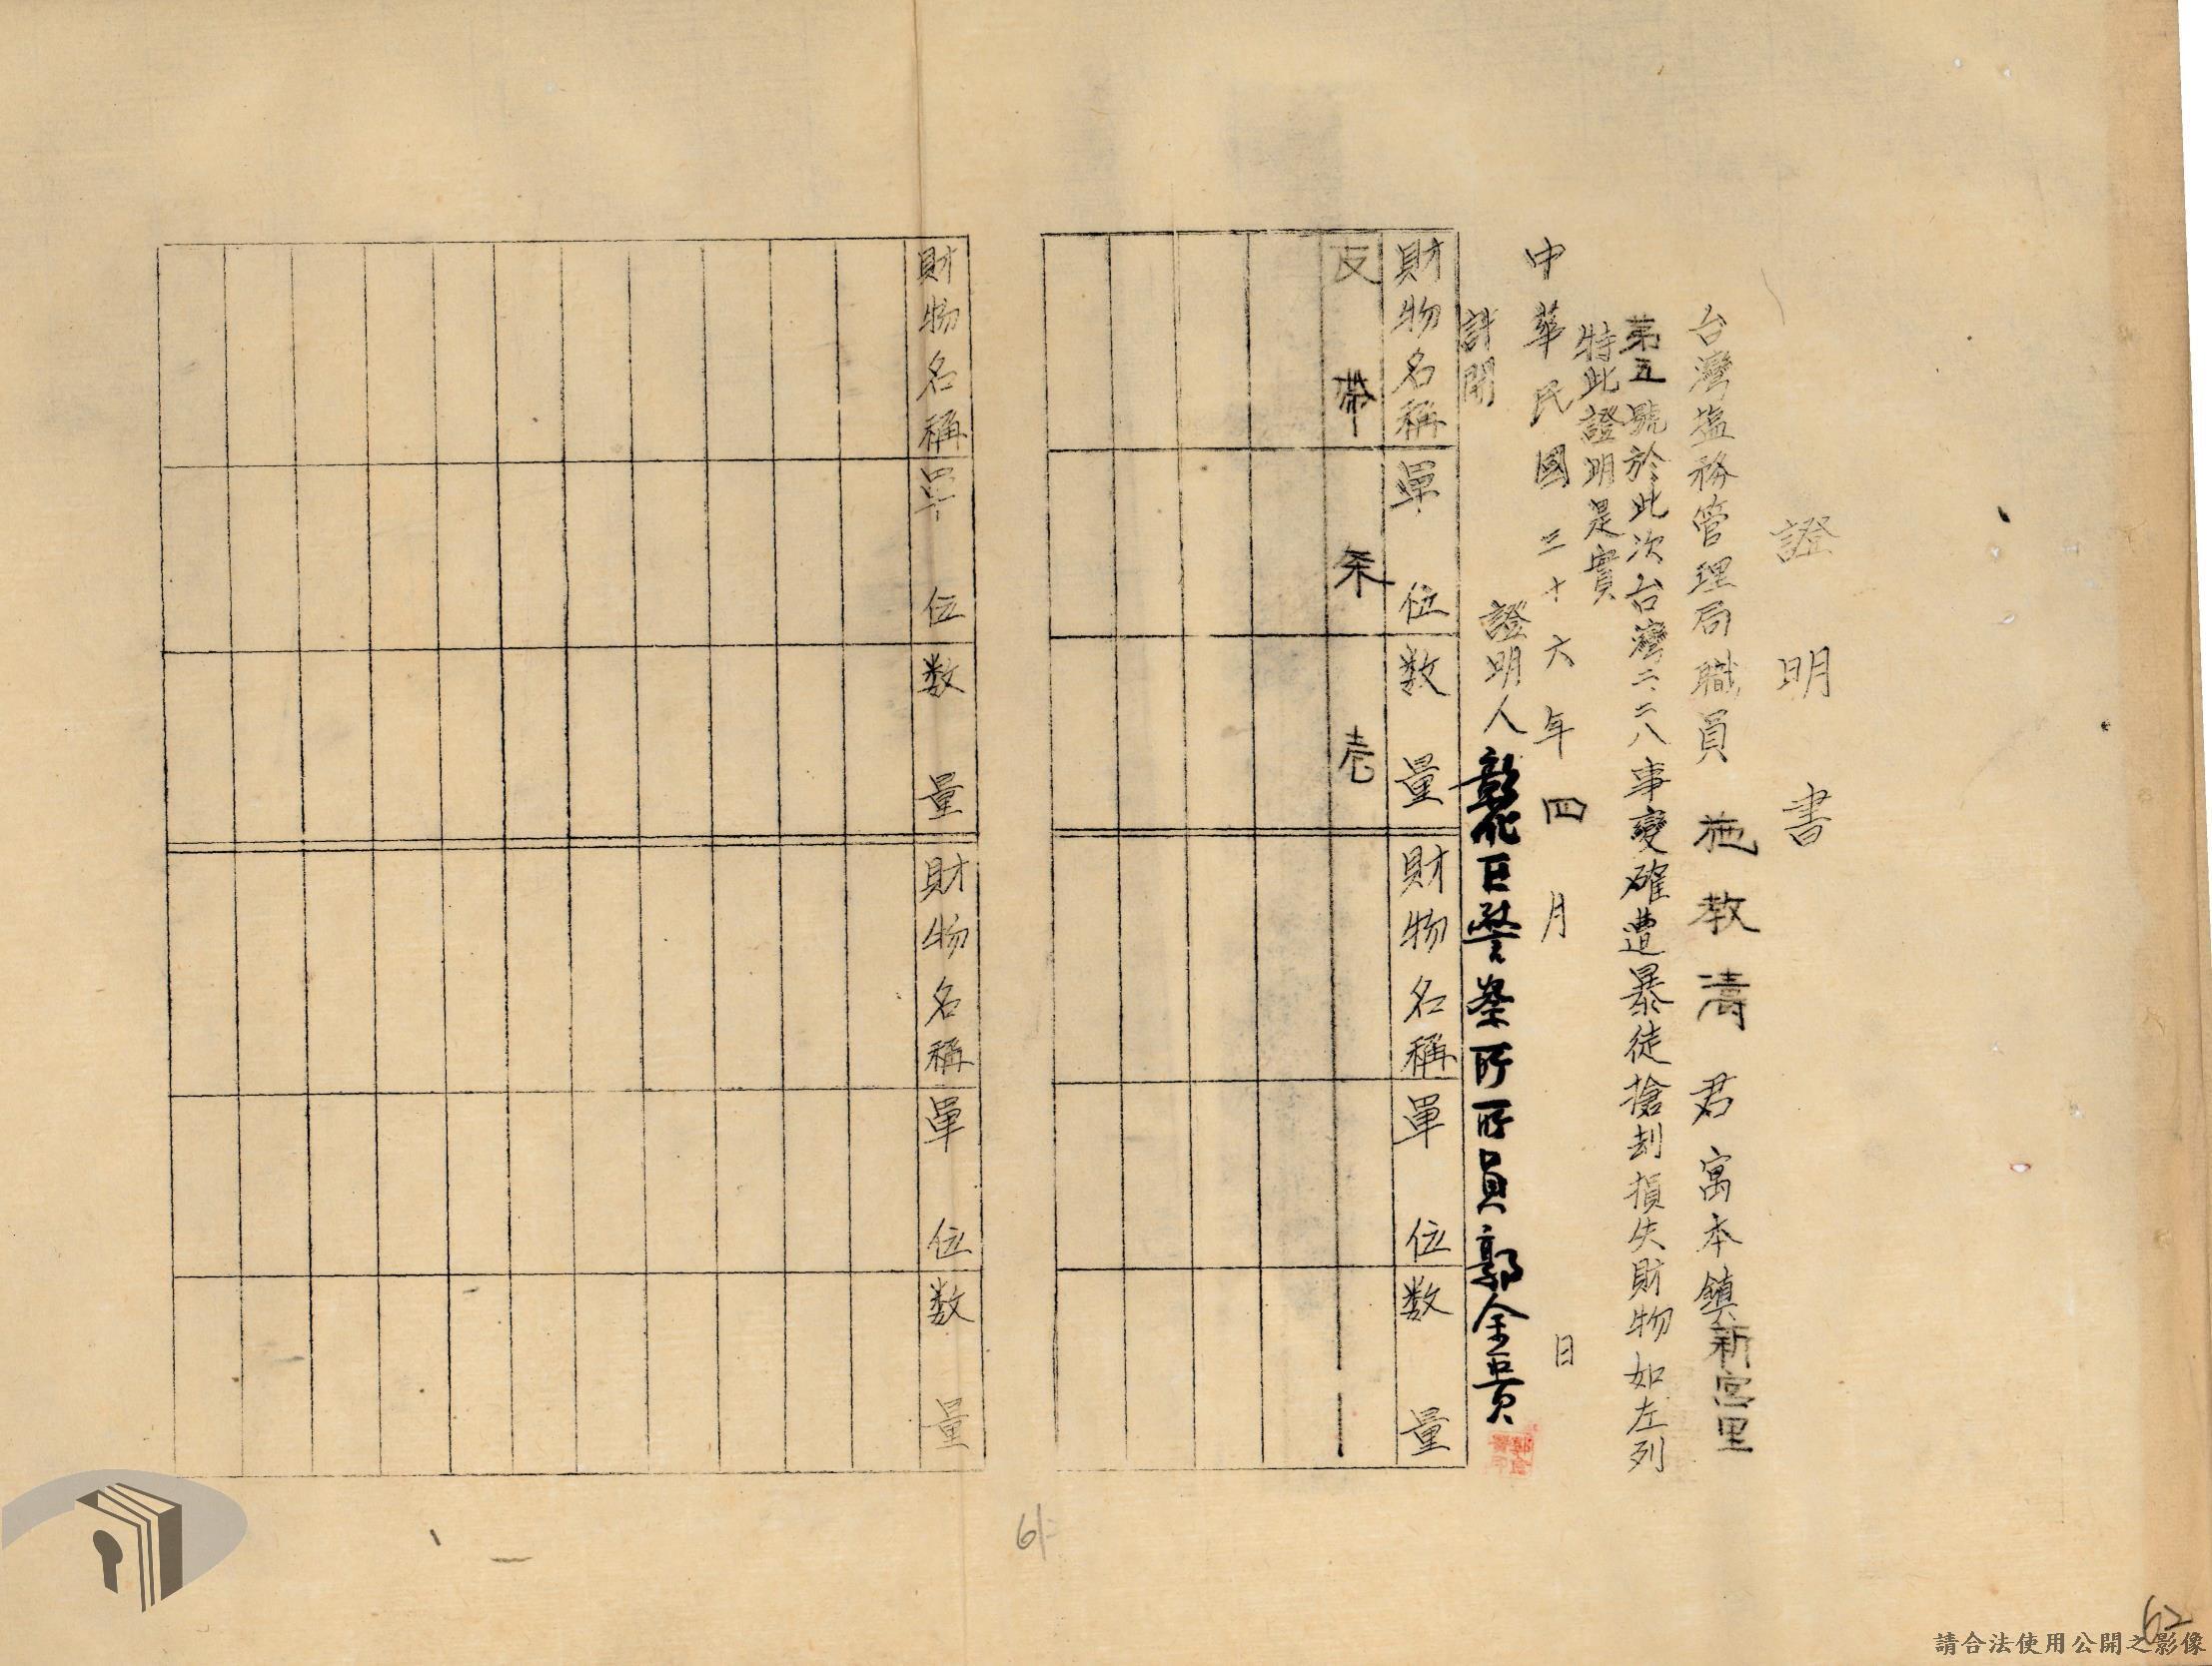 證明書
台灣塩務管理局職員 施教濤 君寓本鎮新宮里
第五號於此次台灣二、二八事變確遭暴徒搶刦損失財物如左列
特此證明是實
中華民國三十六年四月 日
證明人 彰化區警察所所員 郭金貴
計開
財物名稱 單位 数量 財物名稱 單位 数量
皮帶 条 壱
財物名稱 單位 数量 財物名稱 單位 数量
61
62
請合法使用公開之影像